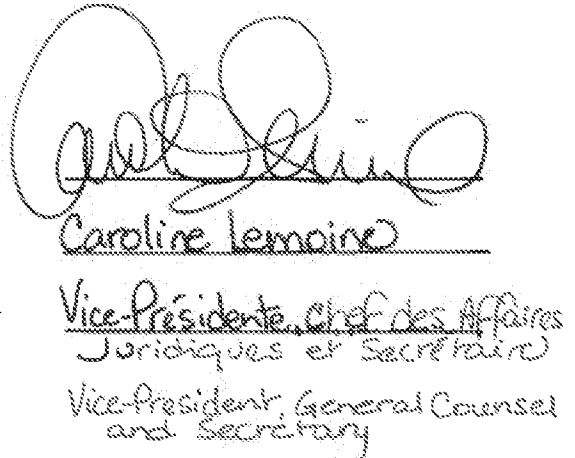 Caroline Lemoine
Vice-Présidente, Chef des Affaires
Juridiques et Secrétaire
Vice-President, General Counsel
and Secretary